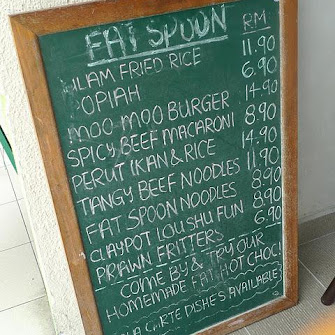 FAT SPOON RM
ULAM FRIED RICE 11.90
POPIAH 6.90
MOO MOO BURGER 14.90
SPICY BEEF MACARONI 8.90
PERUT IKAN & RICE 14.90
TANGY BEEF NOODLES 11.90
FAT SPOON NOODLES 8.90
CLAYPOT LOU SHU FUN 8.90
PRAWN FRITTERS 6.90
COME BY & TRY OUR
HOMEMADE FAT HOT CHOC!
A LA CARTE DISHES AVAILABLE